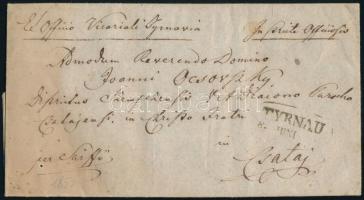 Ex Officio Vicariali Tyrnavia
In Servitii Officiosis
Admodum Reverendo Domino
Joanni Ocsovszky
Districtus Vice Diacono Parocho
Csatajensi in Christo Fratri
TYRNAU
JUNI
in
per Schiffö
Csataj